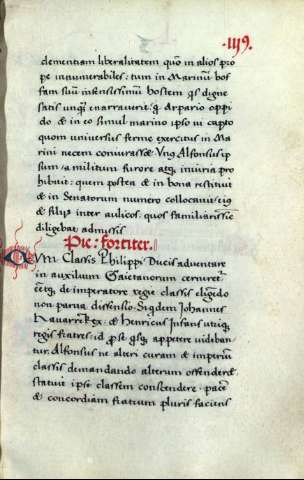 .119.
clementiam liberalitatem quom in alios prope
pe innumerabiles: tum in Marinum bos
fam suum infensissimum hostem quis digne
satis unquam enarraverit. qui Arpario oppi
do & in eo simul marino ipso ui capto
quom universus ferme exercitus in Ma
rini necem coniurasset. Unus Alfonsus ip
sum a militum furore atque iniuria pro
hibuit: quem postea & in bona restituit
& in Senatorum numero collocavit. eius
& filiis inter aulicos quos familiarissime
diligebat admissis
Pie: fortiter.
Quom Classis Philippi Ducis adventare
in auxilium Gaietanorum cerneretur
essetque de imperatore regie classis eligendo
non parua dissensio. Siquidem Johannes
Nauarre Rex & Henricus Infans utrique
regis fratres: id pro se quisque appetere videban
tur. Alfonsus ne alteri curam & imperium
classis demandando alterum offenderet
statuit ipse classem conscendere. pacem
& concordiam fratrum pluris faciens